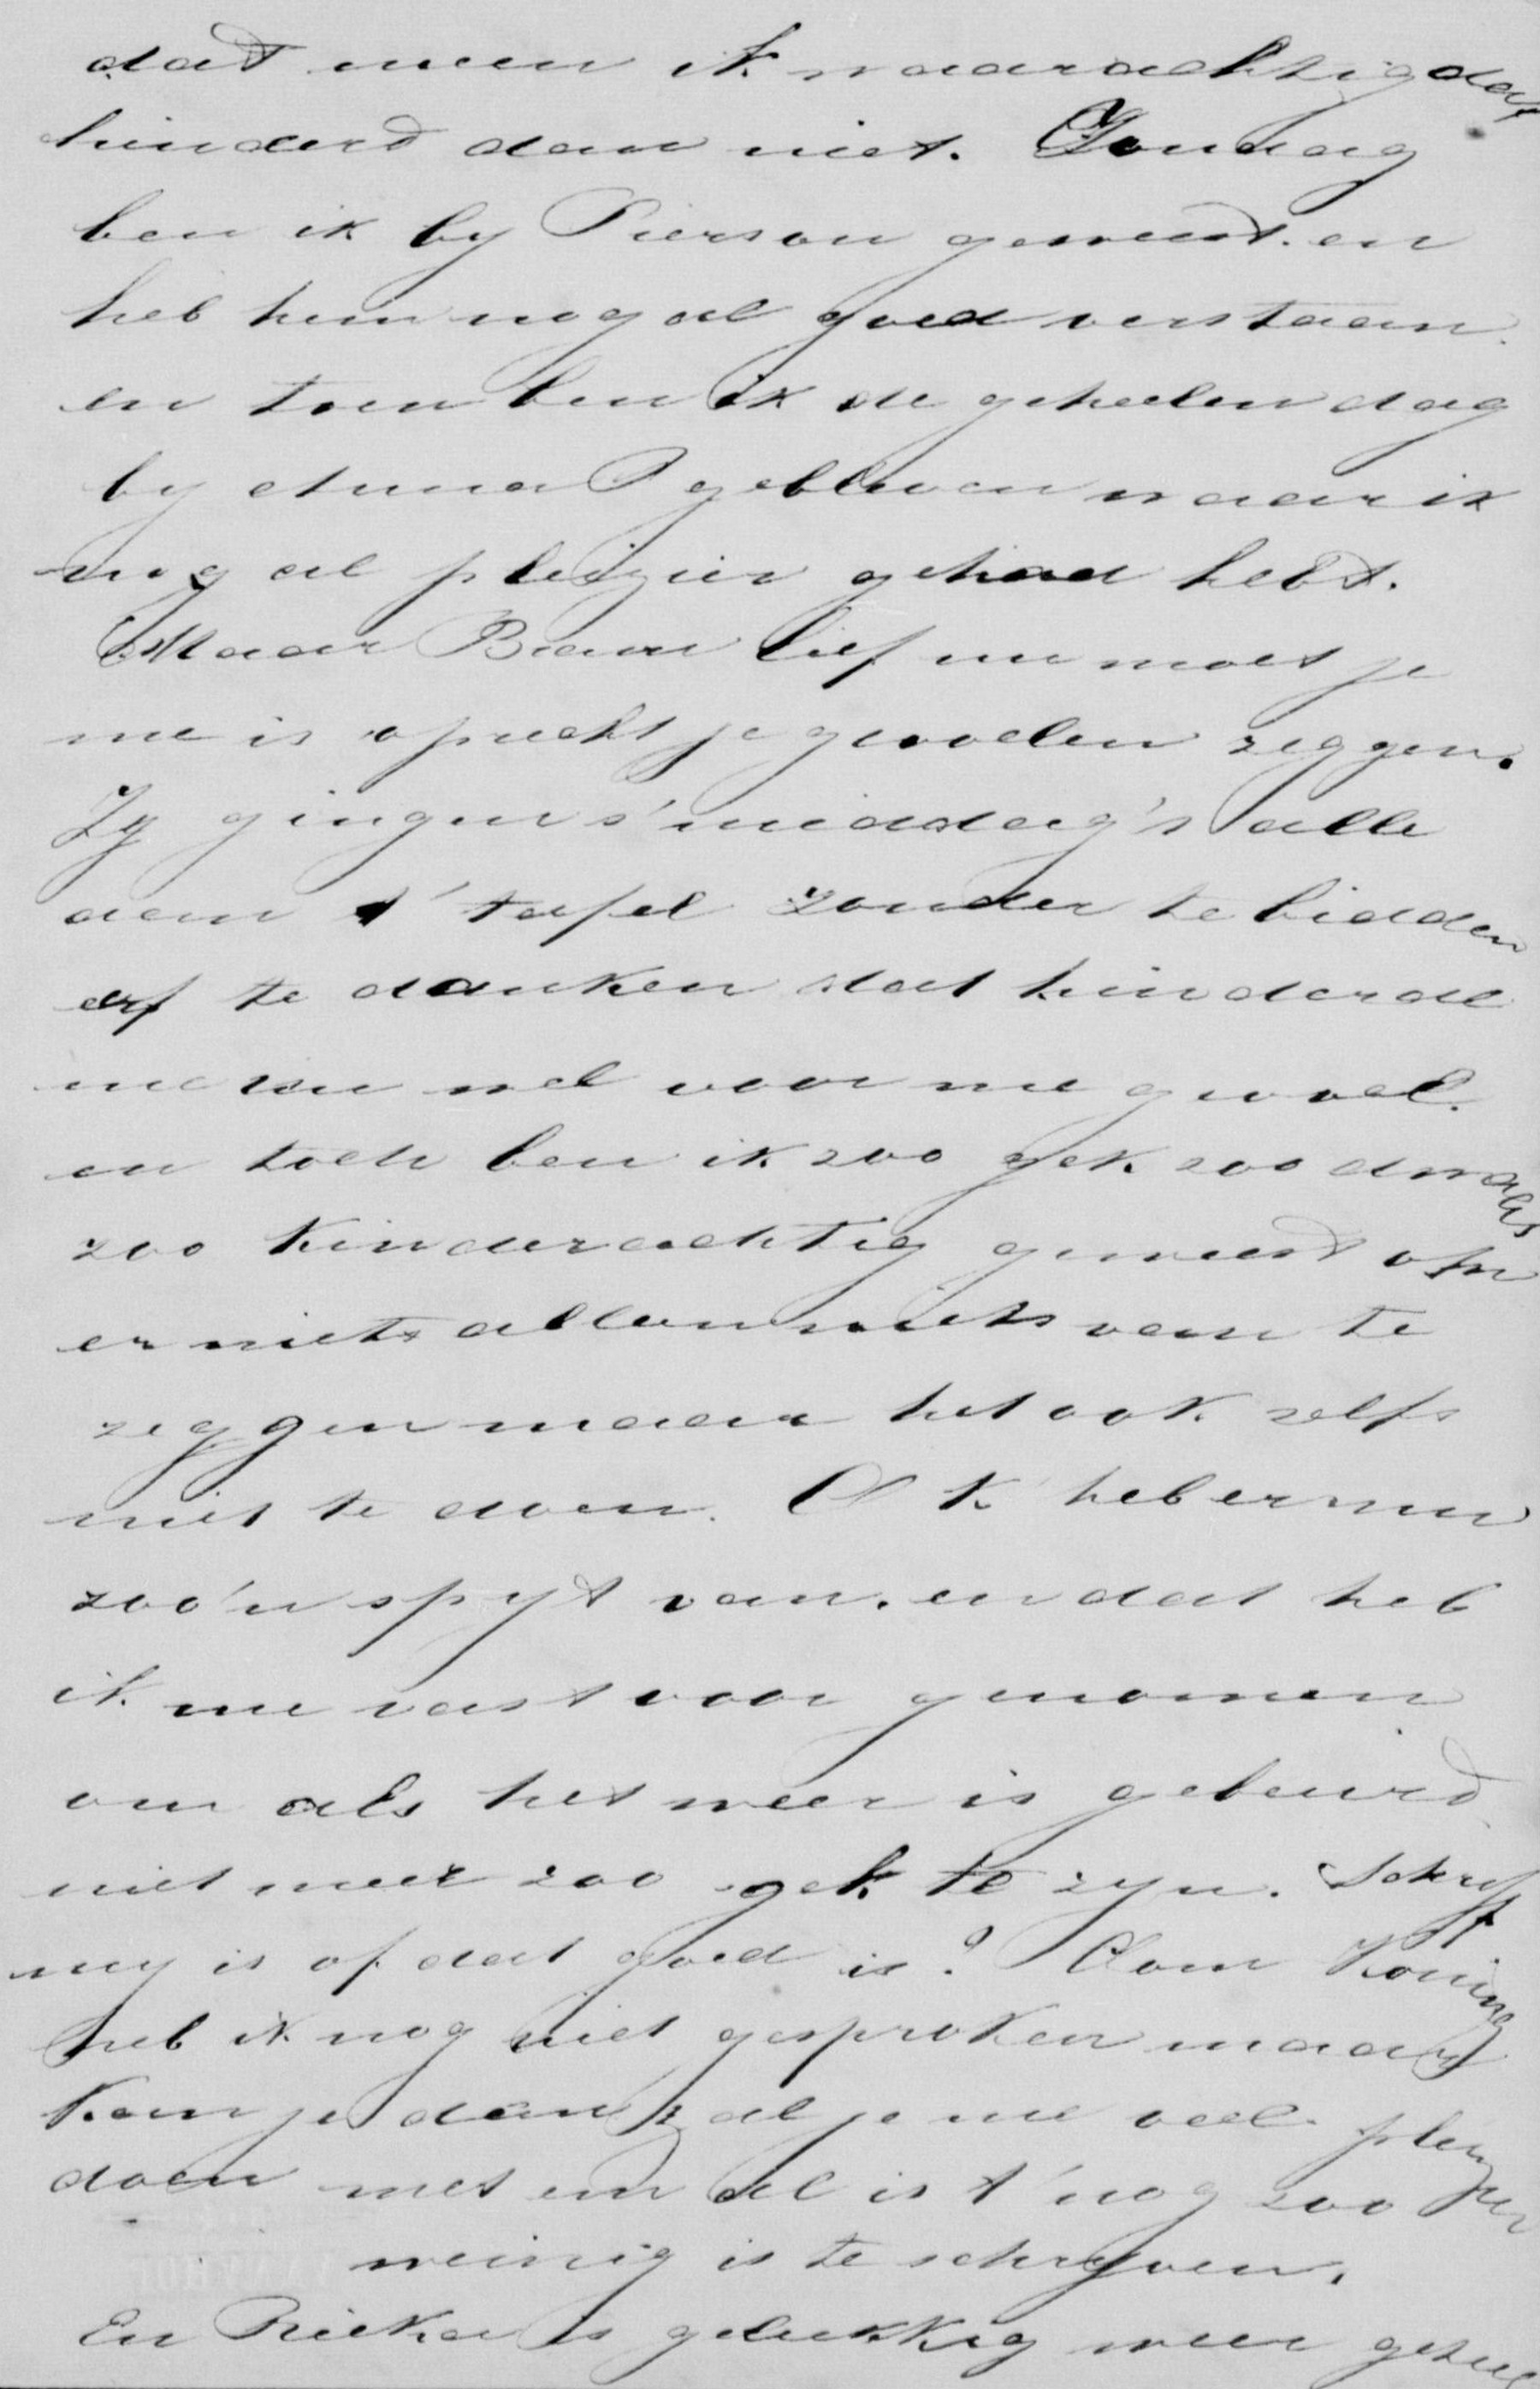 dat meen ik waarachtig dat
hinderd dan niet. Zondag
ben ik by Pierson geweest. en
heb hem nog al goed verstaan.
en toen ben ik de geheelen dag
by Anna P gebleven waar ik
nog al pleizier gehad hebt.
Maar Bram lief nu moet je
me is oprecht je gevoelen zeggen.
Zy gingen s'middag's alle
aan t' tafel zonder te bidden
of te danken dat hinderde
me nu wel voor me gevoel.
en toch ben ik zoo gek zoo dwaas
zoo kinderachtig geweest om
er niets alleen niets van te
zeggen maar het ook zelfs
niet te doen. O k' heb er nu
zoo'n spyt van. en dat heb
ik me vast voor genomen
om als het weer is gebeurd
niet meer zoo gek te zyn. Schryf
my is of dat goed is? Oom Koning
heb ik nog niet gesproken maar
kan je dan zal je me veel pleizier
doen met een al is t' nog zoo
weinig is te schryven.
En Rieka is gelukkig weer geheel